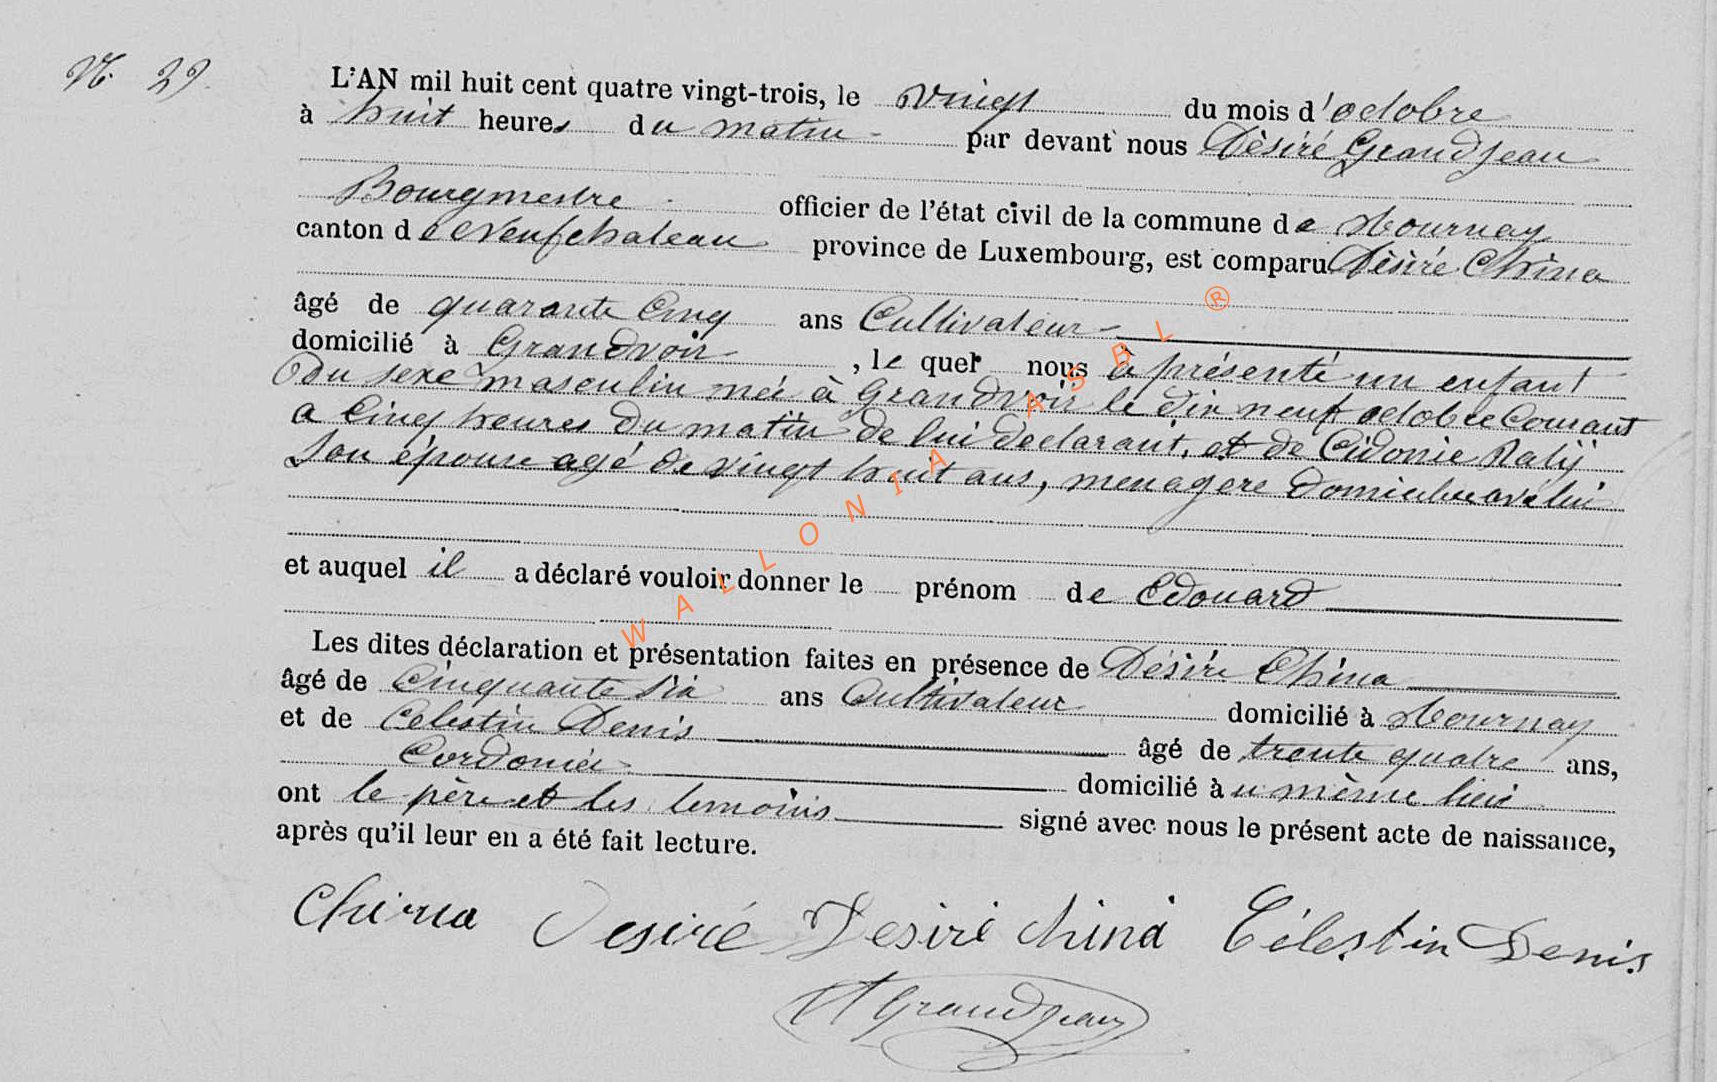 N. 29.
L'AN mil huit cent quatre vingt-trois, le vingt du mois d'octobre
à huit heures du matin par devant nous Désiré Grandjean
Bourgmestre officier de l'état civil de la commune de Tournay
canton de Neufchateau province de Luxembourg, est comparu Désiré China
âgé de quarante Cinq ans Cultivateur
domicilié à Grandvoir, le quel nous à présenté un enfant
du sexe masculin née à Grandvoir le dix neuf octobre Courant
a Cinq heures du matin de lui declarant, et de Cidonie
Son épouse agé de vingt huit ans, menagere domiciliée avec lui
et auquel il a déclaré vouloir donner le prénom de Edouard
Les dites déclaration et présentation faites en présence de Désiré China
âgé de Cinquante six ans Cultivateur domicilié à Tournay
et de Celestin Denis âgé de trente quatre ans,
Cordonier domicilié àu même lieu
ont le père et les temoins signé avec nous le présent acte de naissance,
après qu'il leur en a été fait lecture.
China Desiré Desiré China Célestin Denis
Grandjean
WALLONIA ASBL ®